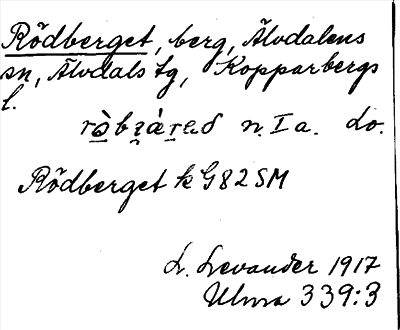 Rödberget, berg, Älvdalens
sn, Älvdals tg, Kopparbergs
l.
n. I a. do.
Rödberget k G82SM
L. Levander 1917
Ulma 339:3